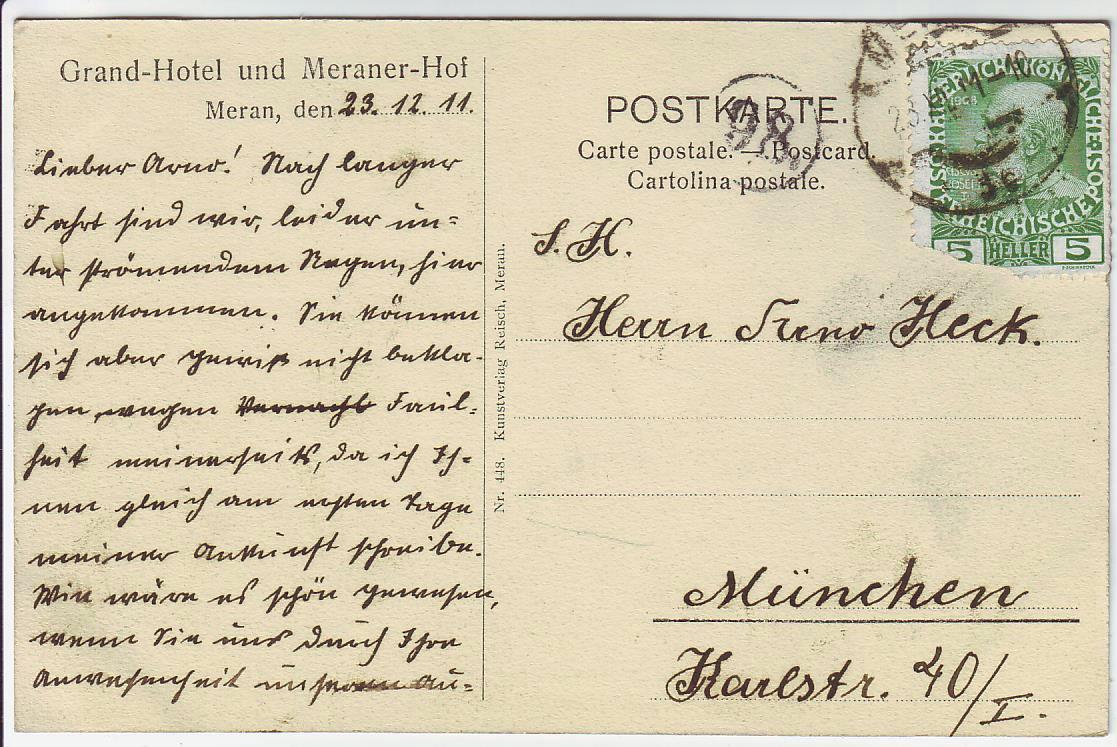 Grand-Hotel und Meraner-Hof
Meran, den 23. 12. 11.
Lieber Arno! Nach langer
Fahrt sind wir, leider un=
ter strömendem Regen, hier
angekommen. Sie können
sich aber gewiß nicht bekla-
gen, wegen Faul-
heit meinerseits, da ich Ih-
nen gleich am ersten Tage
meiner Ankunft schreibe.
Wie wäre es schön gewesen,
wenn Sie uns durch Ihre
Anwesenheit unseren Au=
Nr. 448. Kunstverlag Reisch, Meran.
POSTKARTE.
98
Carte postale. — Postcard.
Cartolina postale.
S. H.
Herrn Arno Heck.
München
Karlstr. 40/I.
1908
5 HELLER 5